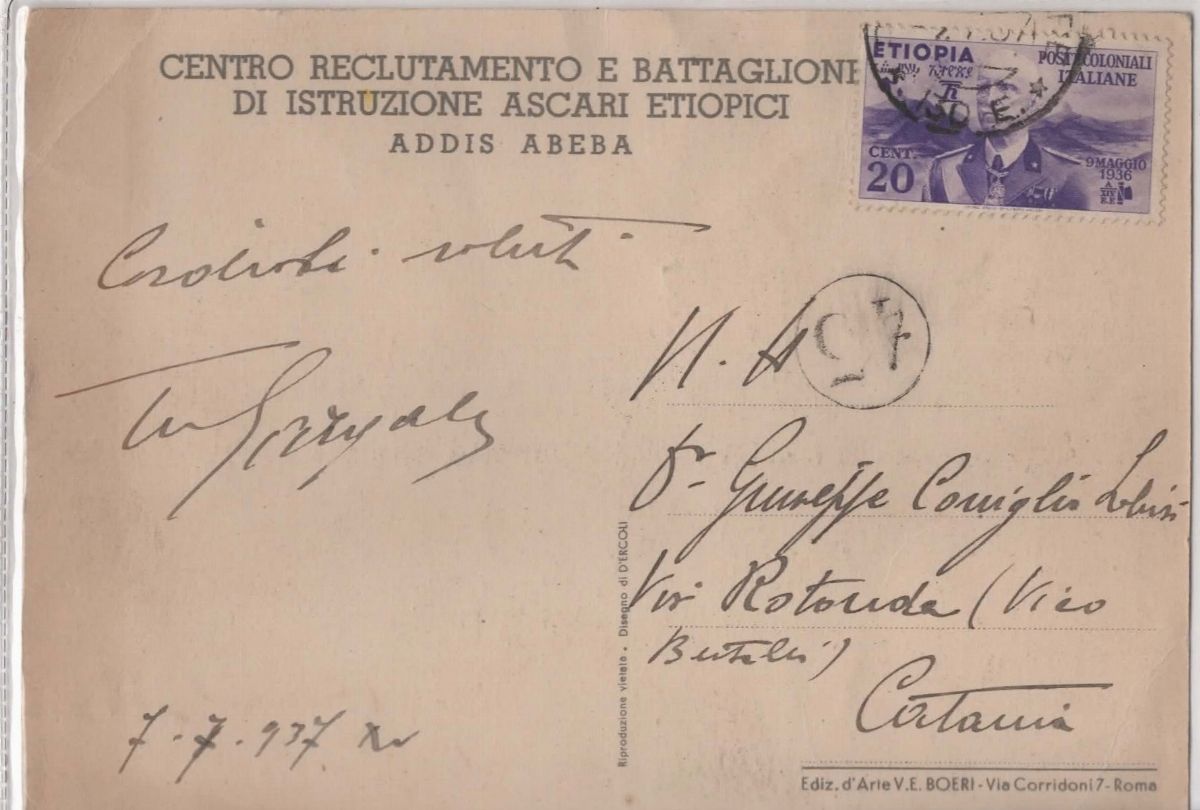 CENTRO RECLUTAMENTO E BATTAGLIONE
DI ISTRUZIONE ASCARI ETIOPICI
ADDIS ABEBA
ETIOPIA
POSTE COLONIALI
ITALIANE
CENT.
20
9 MAGGIO
1936
A.
XIV
E.F.
Cordiali saluti
N. H
Dr Giuseppe Coniglio
Via Rotonda (Vico
Catania
7-7-937 XV
Riproduzione vietata • Disegno di D'ERCOLI
Ediz. d'Arte V.E. BOERI - Via Corridoni 7 - Roma